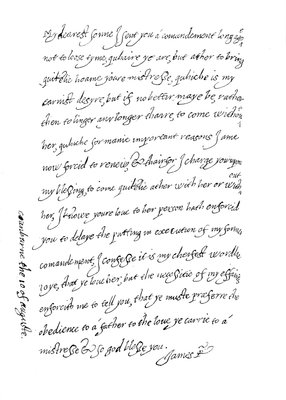 My dearest sonne I sent you a comandement long agoe
not to loose tyme, quhaire ye are, but ather to bring
quikelie hoame youre mistresse, quhiche is my
earnist desyre, but if no better maye be, rather
then to linger any longer thaire, to come without
her, quhiche for manie important reasons I ame
now forcid to renew, & thairfor I charge you upon
my blessing, to come quikelie ather with her or without
her, I knowe youre love to her person hath enforced
you to delaye the putting in execution of my former
comandement, I confesse it is my cheifest wordlie
ioye, that ye love her, but the necessitie of my effaires
enforcith me to tell you, that ye muste preferre the
obedience to a father to the love ye carrie to a
mistresse & so god blesse you.
James R
cranborne the 10 of auguste.